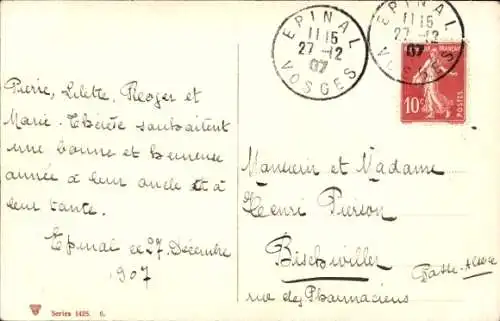 Pierre, Lilette, Roger et
Marie-Thérèse souhaitent
une bonne et heureuse
année à leur oncle et à
leur tante.
Epinal ce 27 Décembre
1907
Series 1425. 6.
EPINAL
11 15
27-12
07
VOSGES
EPINAL
11 15
27-12
07
VOSGES
10c
POSTES
Monsieur et Madame
Henri Pierson
Bischwiller
Basse-Alsace
rue des Pharmaciens